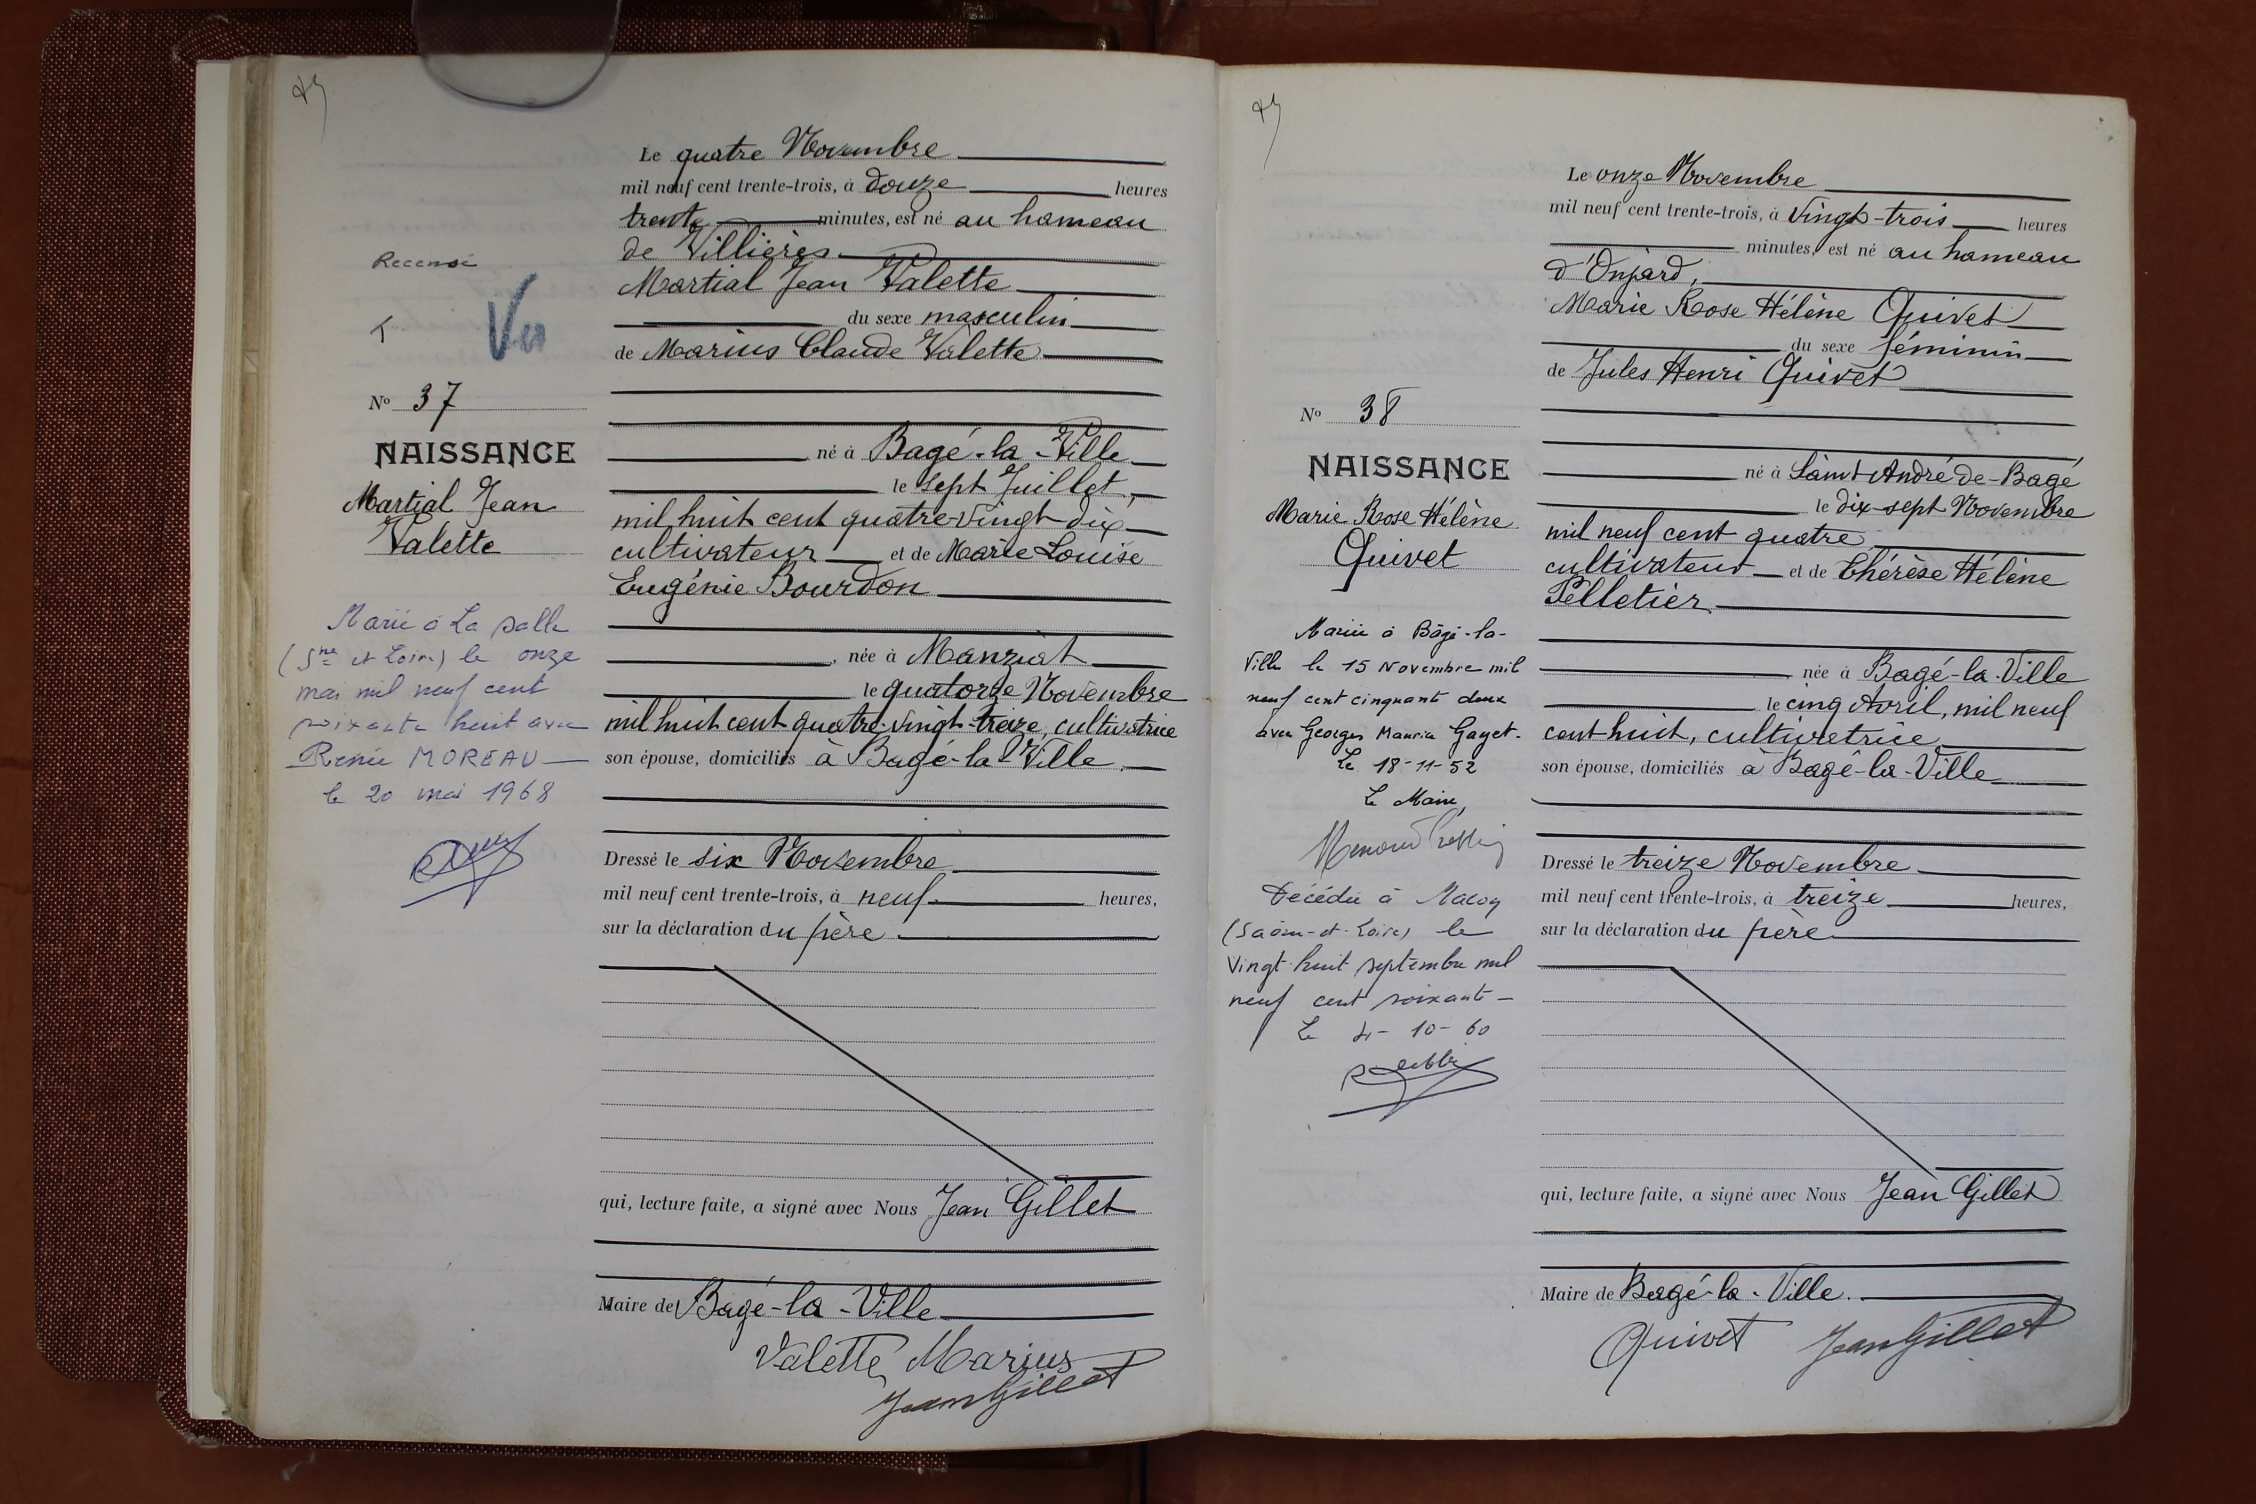 Le quatre Novembre
mil neuf cent trente-trois, à douze heures
trente minutes, est né au hameau
de Villières
Martial Jean Valette
du sexe masculin
de Marius Claude Valette
né à Bagé-la-Ville
le sept Juillet,
mil huit cent quatre-vingt-dix
cultivateur et de Marie Louise
Eugénie Bourdon
, née à Manziat
le quatorze Novembre
mil huit cent quatre-vingt-treize, cultivatrice
son épouse, domiciliés à Bagé-la-Ville.
Dressé le six Novembre
mil neuf cent trente-trois, à neuf heures,
sur la déclaration du père.
qui, lecture faite, a signé avec Nous Jean Gillet
Maire de Bagé-la-Ville
Valette Marius
Jean Gillet
Recensé
T
Vu
No 37
NAISSANCE
Martial Jean
Valette
Marié à La Salle
(Sne et Loire) le onze
mai mil neuf cent
soixante huit avec
Renée MOREAU
le 20 mai 1968
Le onze Novembre
mil neuf cent trente-trois, à vingt-trois heures
minutes, est né au hameau
d'Onjard,
Marie Rose Hélène Quivet
du sexe féminin
de Jules Henri Quivet
né à Saint André-de-Bagé
le dix-sept Novembre
mil neuf cent quatre
cultivateur et de Thérèse Hélène
Pelletier
née à Bagé-la-Ville
le cinq Avril, mil neuf
cent huit, cultivatrice
son épouse, domiciliés à Bagé-la-Ville
Dressé le treize Novembre
mil neuf cent trente-trois, à treize heures,
sur la déclaration du père
qui, lecture faite, a signé avec Nous Jean Gillet
Maire de Bagé-la-Ville.
Quivet Jean Gillet
No 38
NAISSANCE
Marie Rose Hélène
Quivet
Mariée à Bâgé-la-
Ville le 15 Novembre mil
neuf cent cinquante deux
avec Georges Maurice Gayet.
Le 18-11-52
Le Maire,
Décédée à Macon
(Saône-et-Loire) le
Vingt huit septembre mil
neuf cent soixante
Le 4-10-60